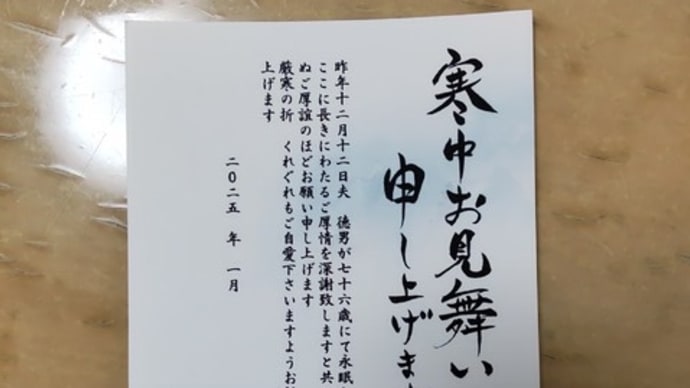 寒中お見舞い
申し上げま
昨年十二月十二日夫　徳男が七十六歳にて永眠
ここに長きにわたるご厚情を深謝致しますと共
ぬご厚誼のほどお願い申し上げます
厳寒の折　くれぐれもご自愛下さいますようお
上げます
二〇二五　年　一月